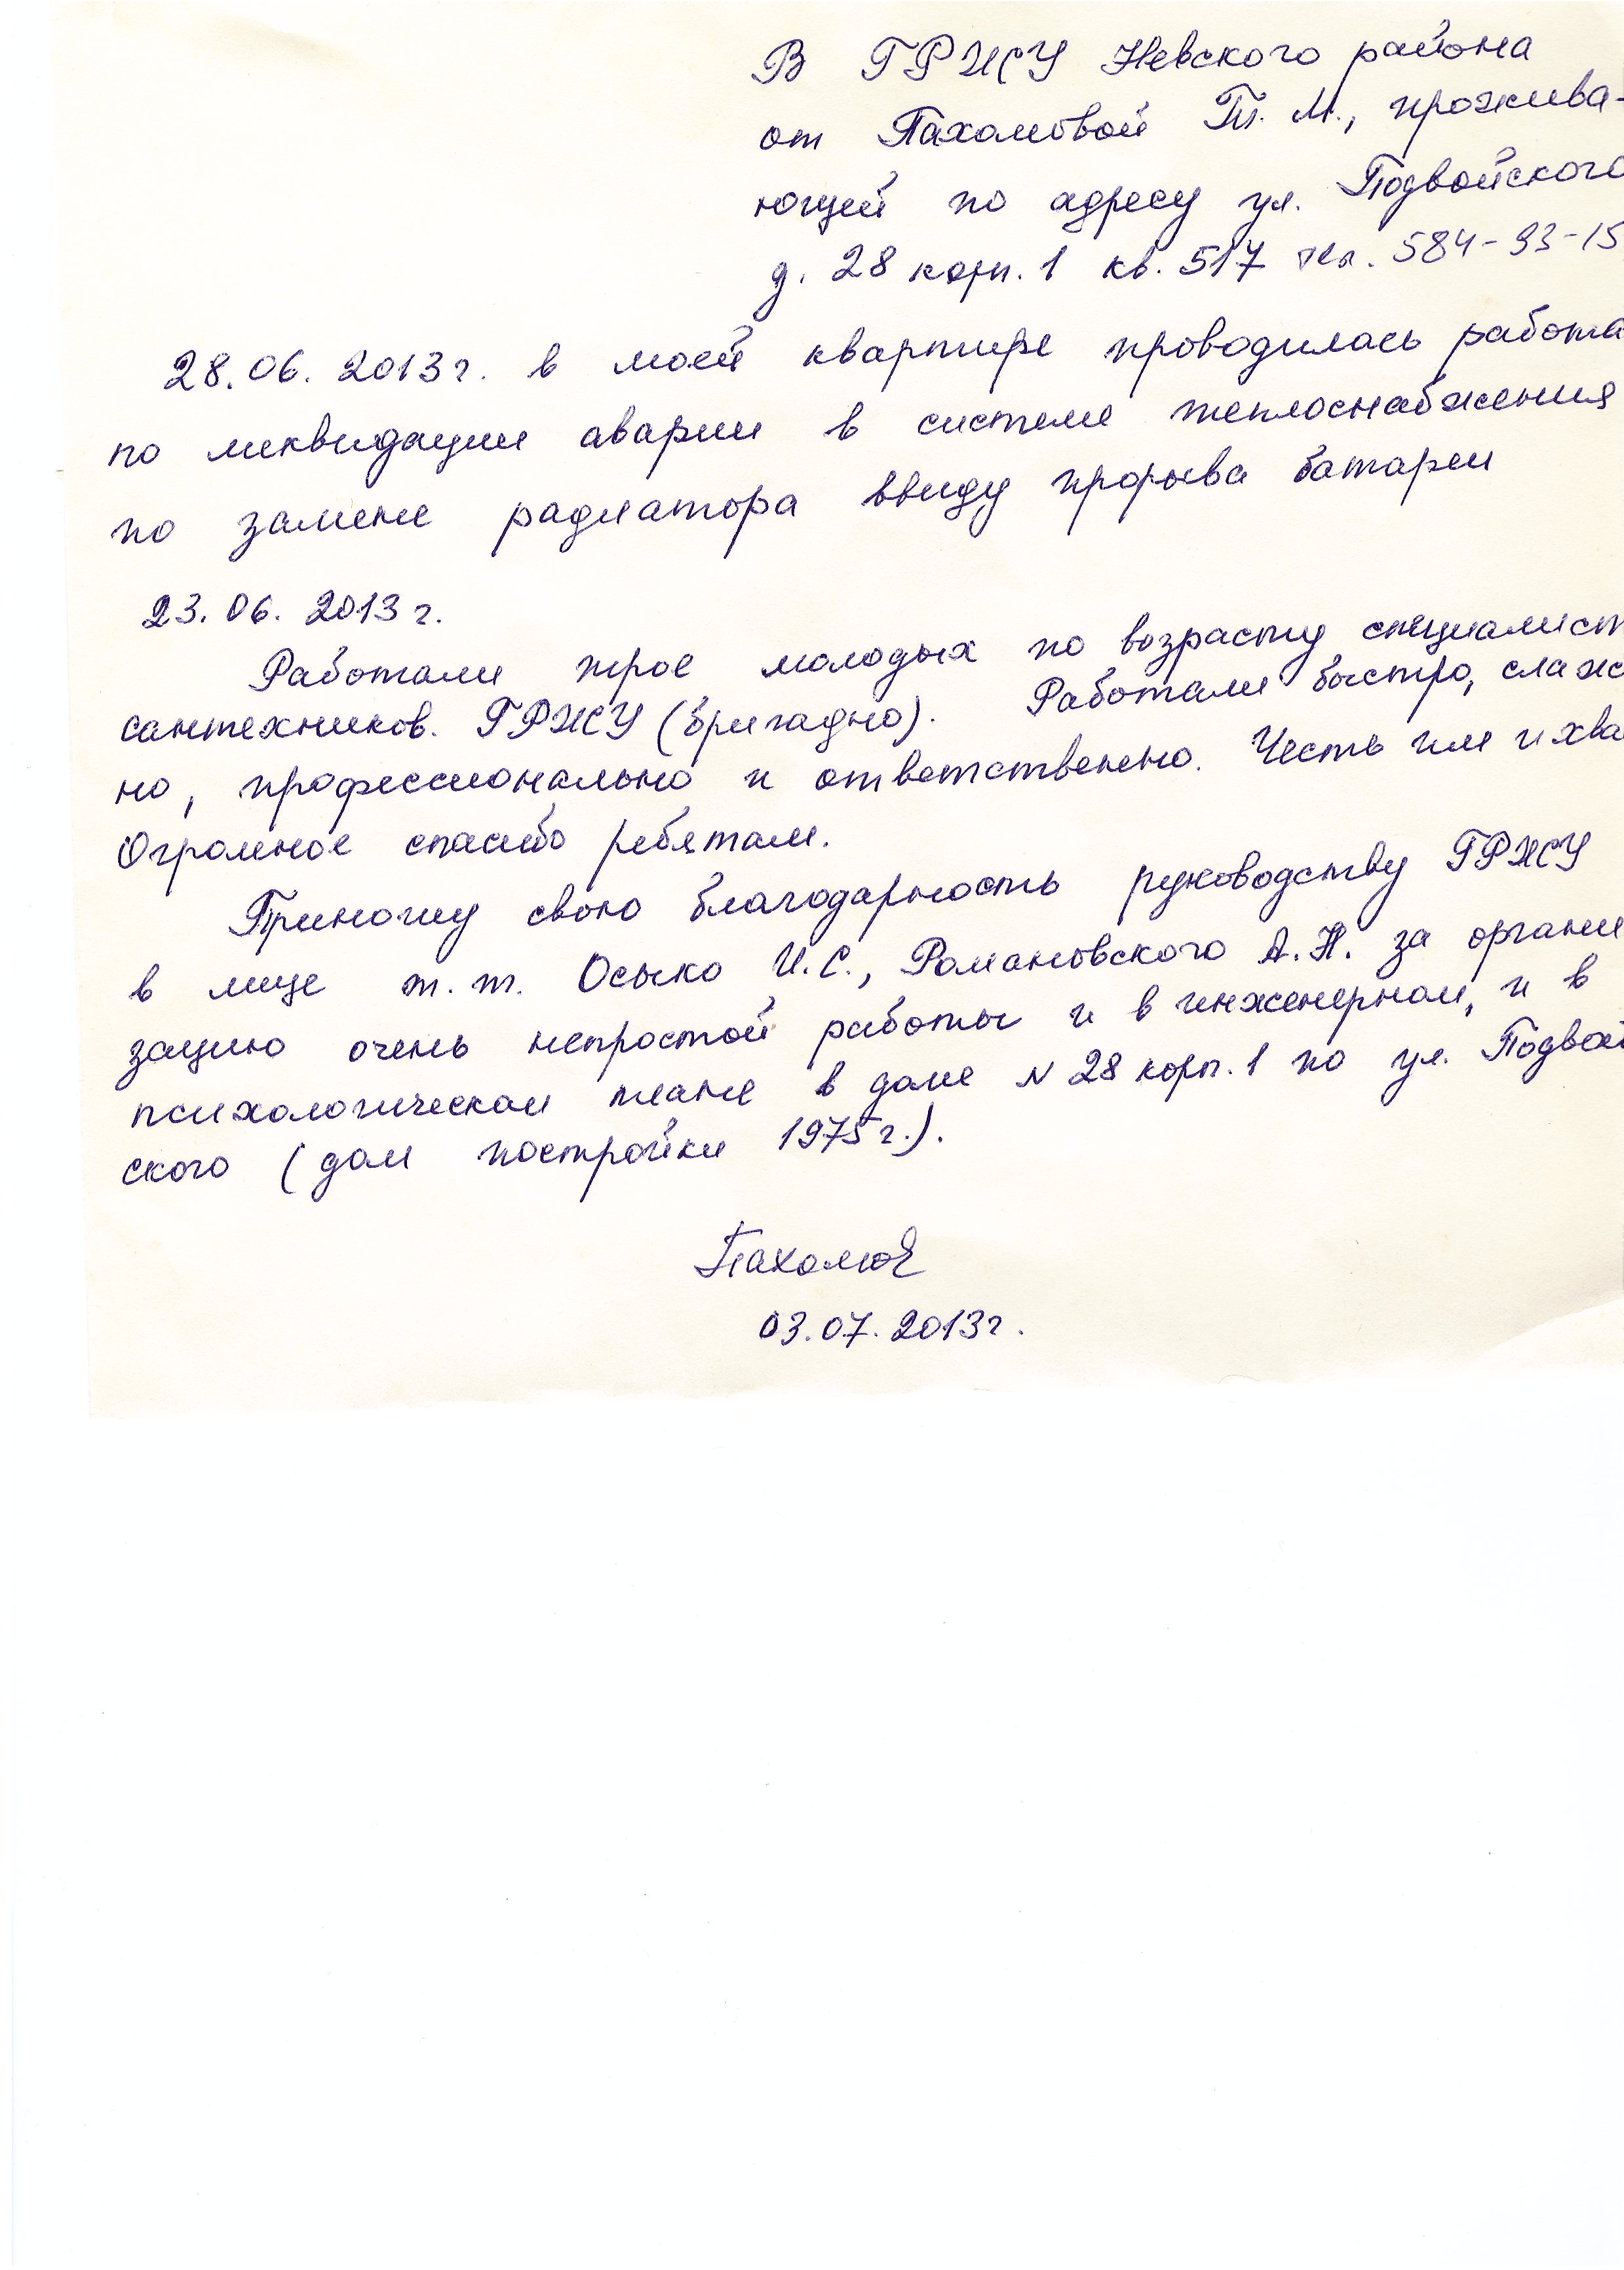 В ГРЖСУ Невского района
от Пахомовой Т. М., прожива-
ющей по адресу ул. Подвойского
д. 28 корп. 1 кв. 517 тел. 584-93-15
28.06. 2013 г. в моей квартире проводилась работа
по ликвидации аварии в системе теплоснабжения
по замене радиатора ввиду прорыва батареи
23.06. 2013 г.
Работали трое молодых по возрасту специалист
сантехников. ГРЖСУ (бригадно). Работали быстро, слаж
но, профессионально и ответственно. Честь им и хва
Огромное спасибо ребятам.
Приношу свою благодарность руководству ГРЖСУ
в лице т.т. Осыко И.С., Романовского А.Н. за органи
зацию очень непростой работы и в инженерном, и в
психологическом плане в доме N 28 корп. 1 по ул. Подвой
ского (дом постройки 1975 г.).
03.07.2013 г.